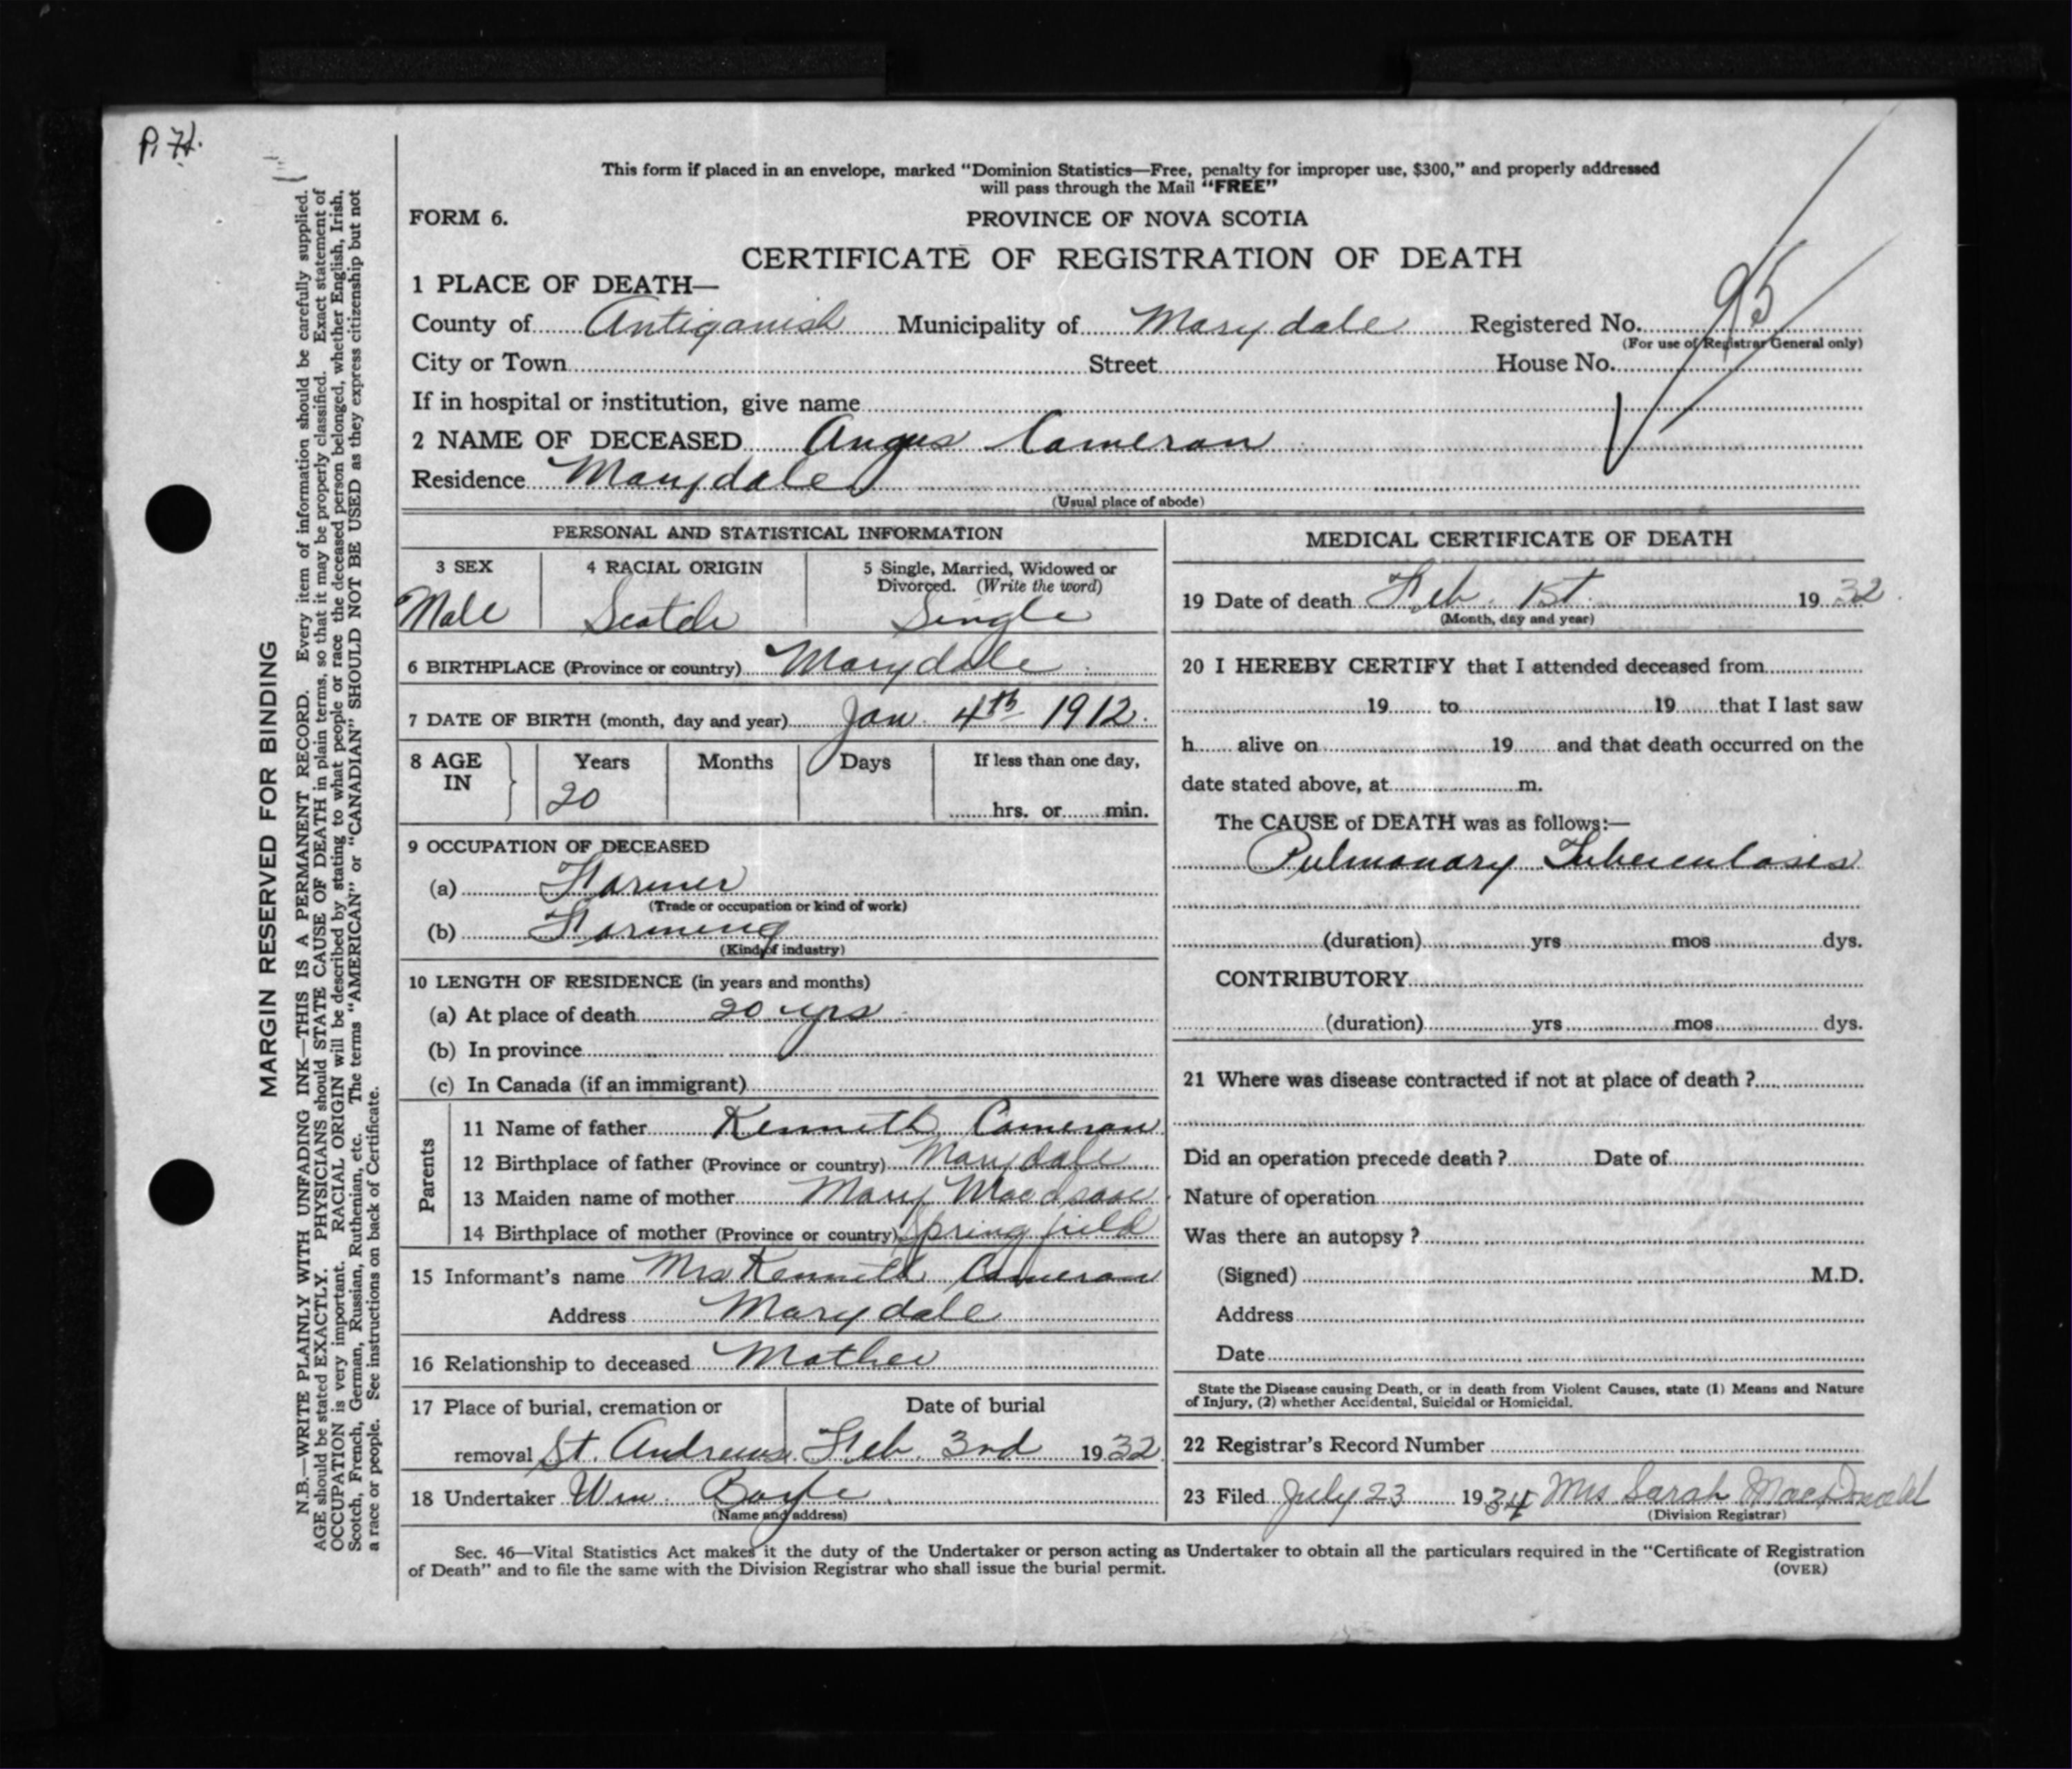 P. H.
This form if placed in an envelope, marked "Dominion Statistics—Free, penalty for improper use, $300," and properly addressed
will pass through the Mail "FREE"
FORM 6. PROVINCE OF NOVA SCOTIA
CERTIFICATE OF REGISTRATION OF DEATH
1 PLACE OF DEATH—
County of Antigonish Municipality of Marydale Registered No. 95
(For use of Registrar General only)
City or Town Street House No.
If in hospital or institution, give name
2 NAME OF DECEASED Angus Cameron
Residence Marydale
(Usual place of abode)
PERSONAL AND STATISTICAL INFORMATION
3 SEX 4 RACIAL ORIGIN 5 Single, Married, Widowed or
Divorced. (Write the word)
Male Scotch Single
6 BIRTHPLACE (Province or country) Marydale
7 DATE OF BIRTH (month, day and year) Jan. 4th 1912.
8 AGE IN Years Months Days If less than one day,
20 hrs. or min.
9 OCCUPATION OF DECEASED
(a) Farmer
(Trade or occupation or kind of work)
(b) Farming
(Kind of industry)
10 LENGTH OF RESIDENCE (in years and months)
(a) At place of death 20 yrs
(b) In province
(c) In Canada (if an immigrant)
Parents
11 Name of father Kenneth Cameron
12 Birthplace of father (Province or country) Marydale
13 Maiden name of mother Mary MacIsaac
14 Birthplace of mother (Province or country) Springfield
15 Informant's name Mrs Kenneth Cameron
Address Marydale
16 Relationship to deceased Mother
17 Place of burial, cremation or Date of burial
removal St. Andrews. Feb. 3rd 1932
18 Undertaker Wm. Boyle
(Name and address)
MEDICAL CERTIFICATE OF DEATH
19 Date of death Feb. 1st. 1932
(Month, day and year)
20 I HEREBY CERTIFY that I attended deceased from
19 to 19 that I last saw
h alive on 19 and that death occurred on the
date stated above, at m.
The CAUSE of DEATH was as follows:—
Pulmonary Tuberculosis
(duration) yrs mos dys.
CONTRIBUTORY
(duration) yrs mos dys.
21 Where was disease contracted if not at place of death ?
Did an operation precede death ? Date of
Nature of operation
Was there an autopsy ?
(Signed) M.D.
Address
Date
State the Disease causing Death, or in death from Violent Causes, state (1) Means and Nature
of Injury, (2) whether Accidental, Suicidal or Homicidal.
22 Registrar's Record Number
23 Filed July 23 1934 Mrs Sarah MacDonald
(Division Registrar)
Sec. 46—Vital Statistics Act makes it the duty of the Undertaker or person acting as Undertaker to obtain all the particulars required in the "Certificate of Registration
of Death" and to file the same with the Division Registrar who shall issue the burial permit. (OVER)
MARGIN RESERVED FOR BINDING
N.B.—WRITE PLAINLY WITH UNFADING INK—THIS IS A PERMANENT RECORD. Every item of information should be carefully supplied.
AGE should be stated EXACTLY. PHYSICIANS should STATE CAUSE OF DEATH in plain terms, so that it may be properly classified. Exact statement of
OCCUPATION is very important. RACIAL ORIGIN will be described by stating to what people or race the deceased person belonged, whether English, Irish,
Scotch, French, German, Russian, Ruthenian, etc. The terms "AMERICAN" or "CANADIAN" SHOULD NOT BE USED as they express citizenship but not
a race or people. See instructions on back of Certificate.